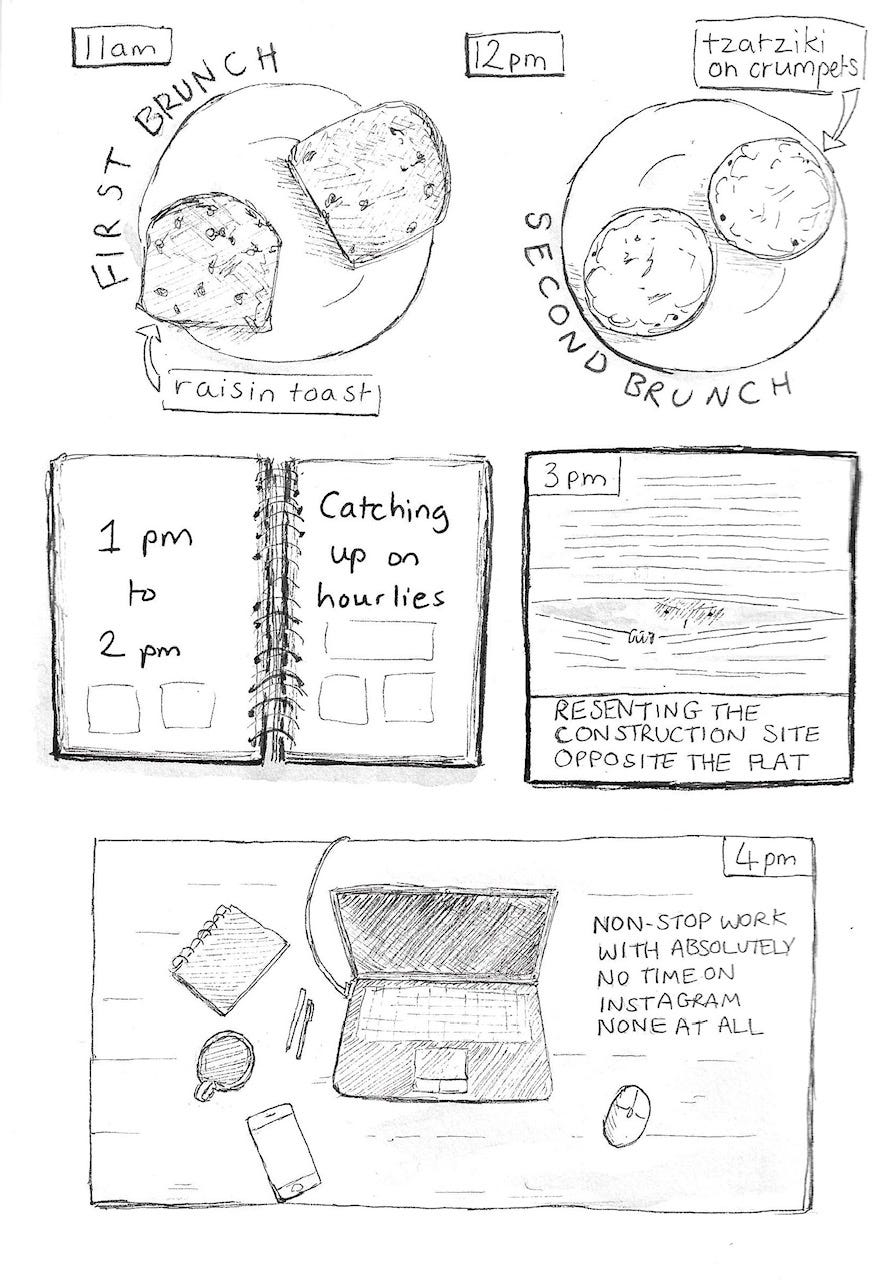 11am
FIRST BRUNCH
raisin toast
12pm
tzatziki
on crumpets
SECOND BRUNCH
1 pm
to
2 pm
Catching
up on
hourlies
3pm
RESENTING THE
CONSTRUCTION SITE
OPPOSITE THE FLAT
4pm
NON-STOP WORK
WITH ABSOLUTELY
NO TIME ON
INSTAGRAM
NONE AT ALL